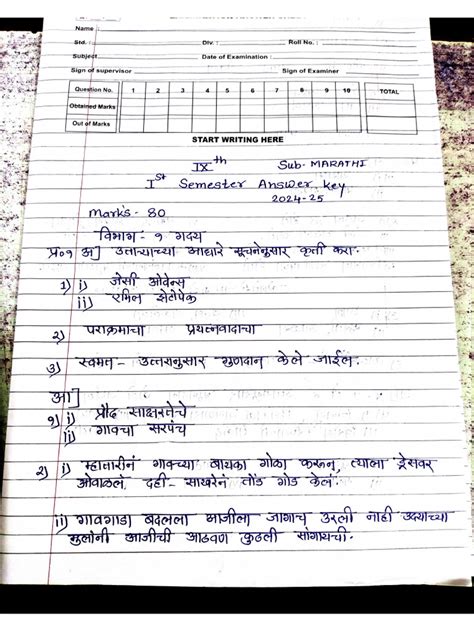 Name :
Std. : Div. : Roll No. :
Subject Date of Examination :
Sign of supervisor Sign of Examiner
Question No. 1 2 3 4 5 6 7 8 9 10 TOTAL
Obtained Marks
Out of Marks
START WRITING HERE
IXth Sub- MARATHI
Ist Semester Answer key
2024-25
Marks - 80
विभाग - १ गद्य
प्र०१ अ] उताऱ्याच्या आधारे सूचनेनुसार कृती करा.
1) i) जेसी ओवेन्स
ii) एमिल झेटोपेक
२) पराक्रमाचा प्रयत्नवादाचा
३) स्वमत - उत्तरानुसार गुणदान केले जाईल.
आ]
१) i) प्रौढ साक्षरतेचे
ii) गावचा सरपंच
२) i) म्हातारीनं गावच्या बायका गोळा करून, त्याला ड्रेसवर
ओवाळलं, दही - साखरेनं तोंड गोड केलं.
ii) गावगाडा बदलला आजीला जागाच उरली नाही उद्याच्या
मुलांनी आजीची आठवण कुठली सांगायची.